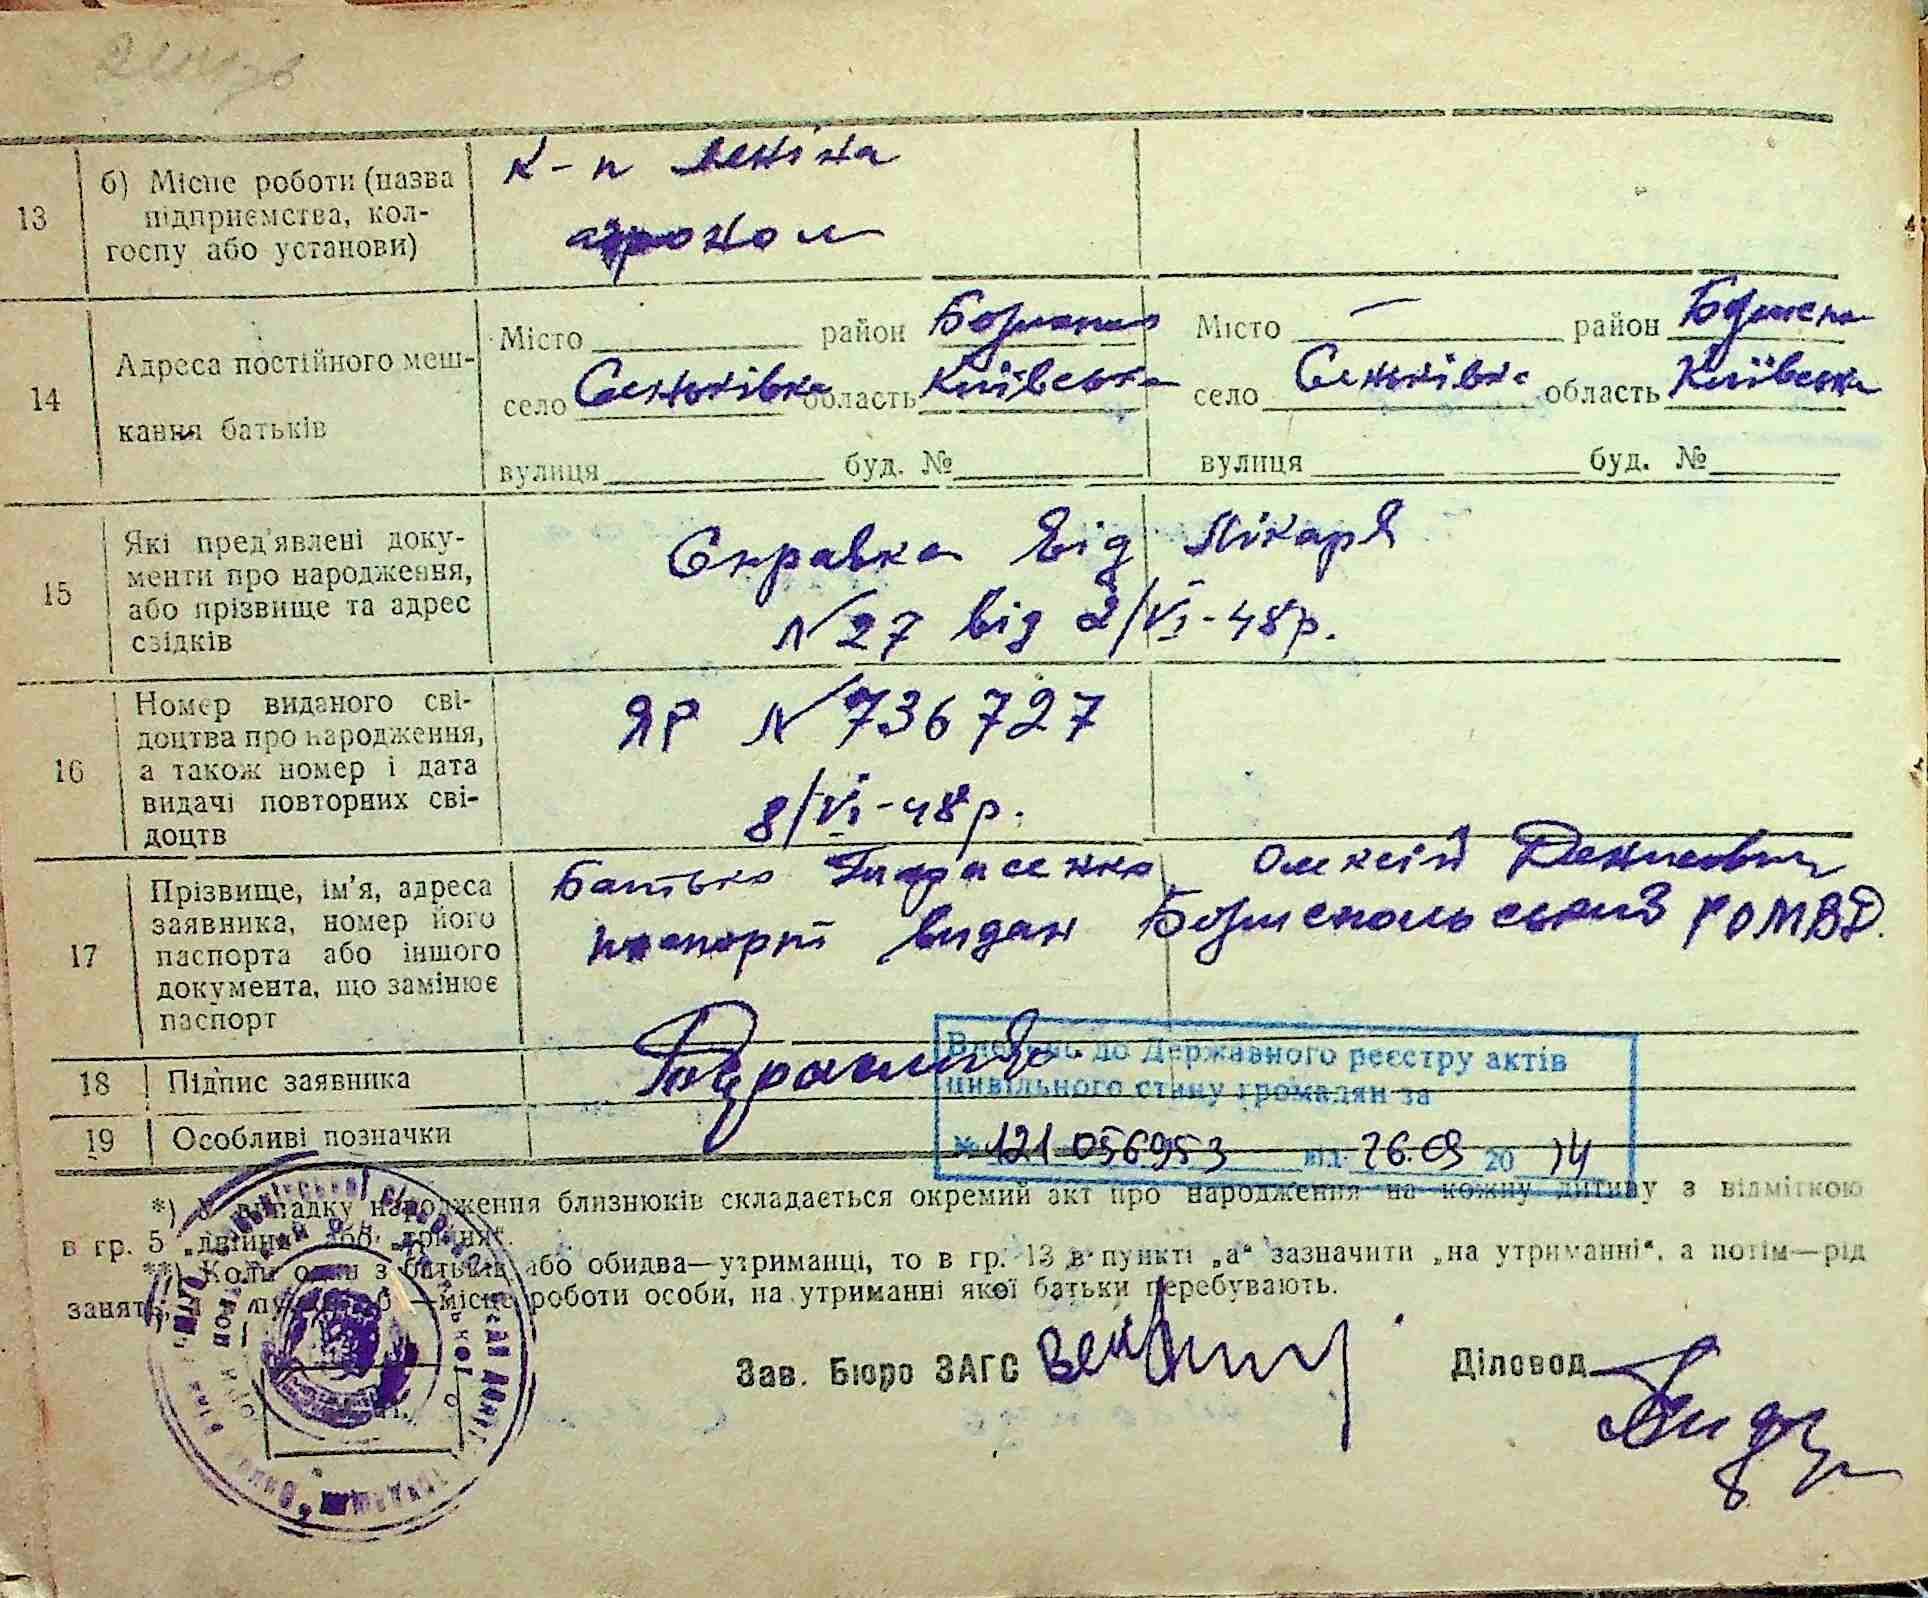 13
б) Місце роботи (назва
підприємства, кол-
госпу або установи)
к-п Леніна
агроном
14
Адреса постійного меш-
кання батьків
Місто район Бориспіль
село Сеньківка область Київська
вулиця буд. №
Місто — район
село Сеньківка область Київська
вулиця буд. №
15
Які пред'явлені доку-
менти про народження,
або прізвище та адрес
свідків
Справка від лікаря
N 27 від 2/VI-48р.
16
Номер виданого сві-
доцтва про народження,
а також номер і дата
видачі повторних сві-
доцтв
ЯР N 736727
8/VI-48р.
17
Прізвище, ім'я, адреса
заявника, номер його
паспорта або іншого
документа, що замінює
паспорт
Батько Тарасенко Олексій Денисович
паспорт видан Бориспольський РОМВД.
18
Підпис заявника
19
Особливі позначки
Внесено до Державного реєстру актів
цивільного стану громадян за
№ 121 056953 від 26.09 2014
*) У випадку народження близнюків складається окремий акт про народження на кожну дитину з відміткою
в гр. 5 „двійня" або „трійня".
**) Коли один з батьків або обидва—утриманці, то в гр. 13 в пункті „а" зазначити „на утриманні", а потім—рід
занять, а в пункті „б"—місце роботи особи, на утриманні якої батьки перебувають.
Зав. Бюро ЗАГС
Діловод